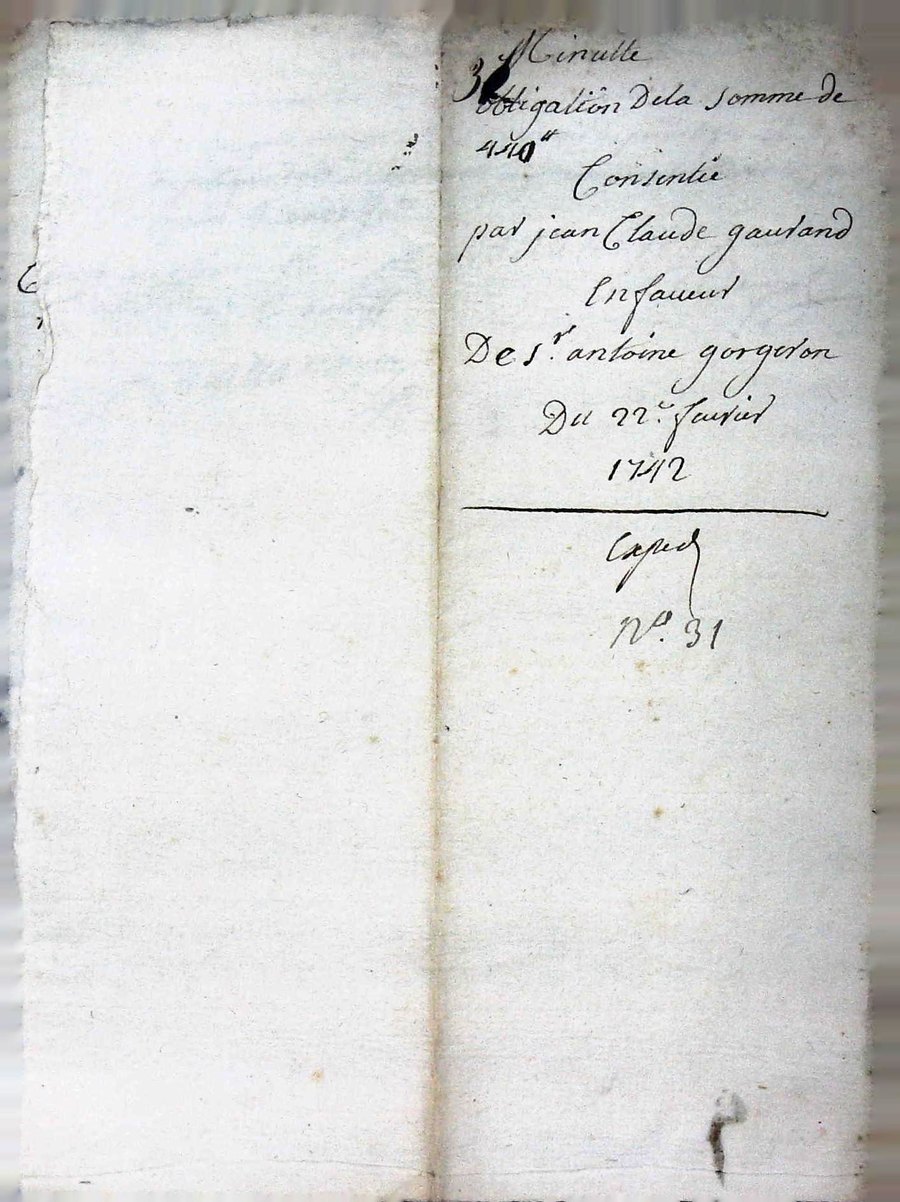 Minutte
obligation Dela somme de
440#
Consentie
par jean Claude gaurand
Enfaueur
De sr. antoine gorgeron
Du 22e feurier
1742
Exped
No. 31